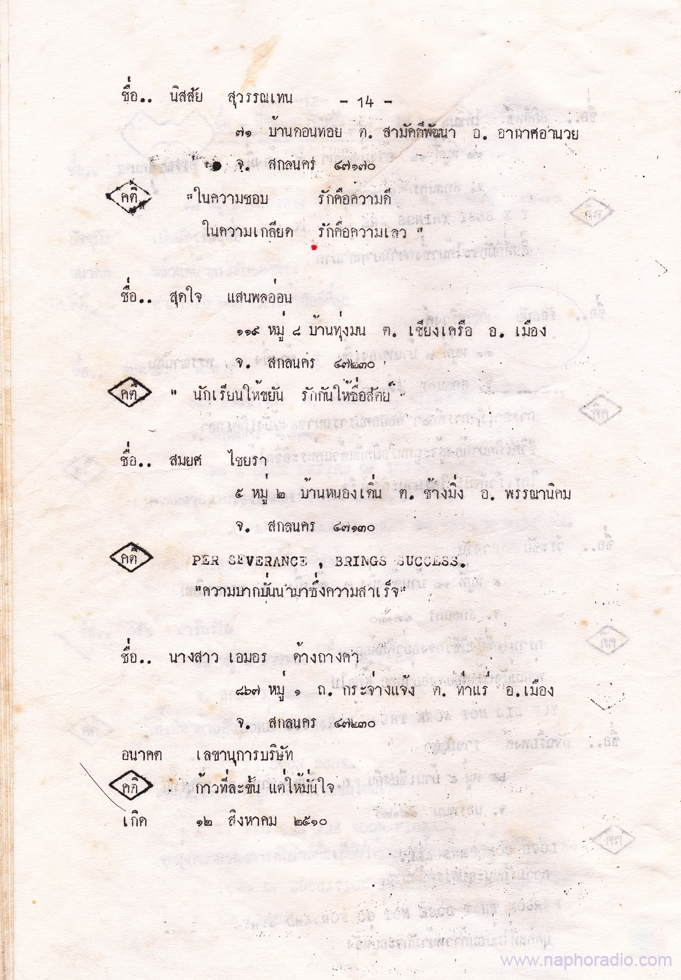 ชื่อ.. นิสสัย สุวรรณเทน - 14 -
๗๑ บ้านดอนทอย ต. สามัคคีพัฒนา อ. อากาศอำนวย
จ. สกลนคร ๔๗๑๗๐
คติ "ในความชอบ รักคือความดี
ในความเกลียด รักคือความเลว "
ชื่อ.. สุดใจ แสนพลอ่อน
๑๑๙ หมู่ ๘ บ้านทุ่งมน ต. เชียงเครือ อ. เมือง
จ. สกลนคร ๔๗๒๓๐
คติ " นักเรียนให้ขยัน รักกันให้ซื่อสัตย์ "
ชื่อ.. สมยศ ไชยรา
๕ หมู่ ๒ บ้านหนองเดิ่น ต. ช้างมิ่ง อ. พรรณานิคม
จ. สกลนคร ๔๗๑๓๐
คติ PER SEVERANCE , BRINGS SUCCESS.
"ความบากบั่นนำมาซึ่งความสำเร็จ"
ชื่อ.. นางสาว เอมอร ค้างถางคำ
๘๖๗ หมู่ ๑ ถ. กระจ่างแจ้ง ต. ท่าแร่ อ.เมือง
จ. สกลนคร ๔๗๒๓๐
อนาคต เลขานุการบริษัท
คติ ก้าวทีละขั้น แต่ให้มั่นใจ
เกิด ๑๒ สิงหาคม ๒๕๑๐
www.naphoradio.com